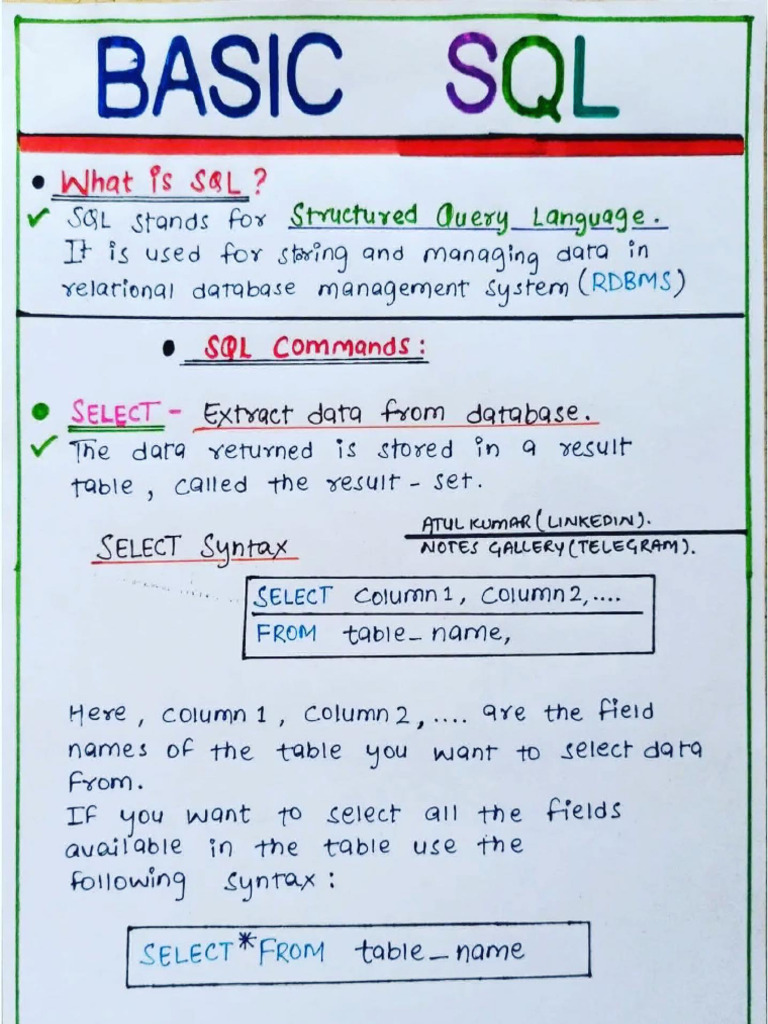 BASIC SQL
• What is SQL?
✓ SQL stands for Structured Query Language.
It is used for storing and managing data in
relational database management system (RDBMS)
• SQL Commands:
• SELECT - Extract data from database.
✓ The data returned is stored in a result
table, called the result-set.
ATUL KUMAR (LINKEDIN).
SELECT Syntax
NOTES GALLERY (TELEGRAM).
SELECT column1, column2,....
FROM table_name,
Here, column1, column2,.... are the field
names of the table you want to select data
from.
If you want to select all the fields
available in the table use the
following syntax:
SELECT * FROM table_name